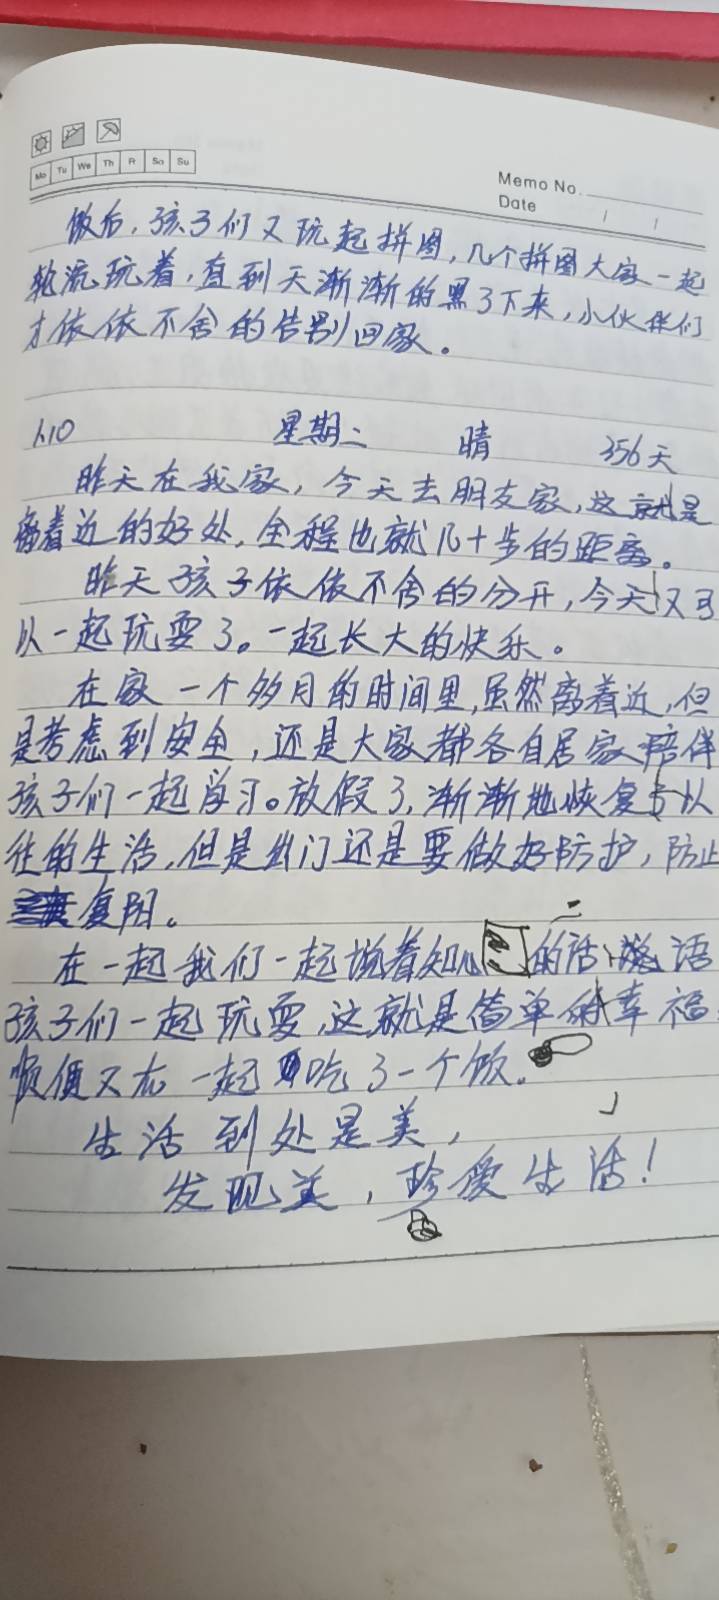 Mo Tu We Th Fr Sa Su
Memo No.
Date / /
饭后，孩子们又玩起拼图，几个拼图大家一起
轮流玩着，直到天渐渐的黑了下来，小伙伴们
才依依不舍的告别回家。
1.10 星期二 晴 356天
昨天在我家，今天去朋友家，这就是
离着近的好处，全程也就几十步的距离。
昨天孩子依依不舍的分开，今天又可
以一起玩耍了。一起长大的快乐。
在家一个多月的时间里，虽然离着近，但
是考虑到安全，还是大家都各自居家陪伴
孩子们一起学习。放假了，渐渐地恢复与以
往的生活，但是出门还是要做好防护，防止
复阳。
在一起我们一起说着知心的话语
孩子们一起玩耍，这就是简单的幸福
顺便又在一起吃了一个饭。
生活到处是美，
发现美，珍爱生活！